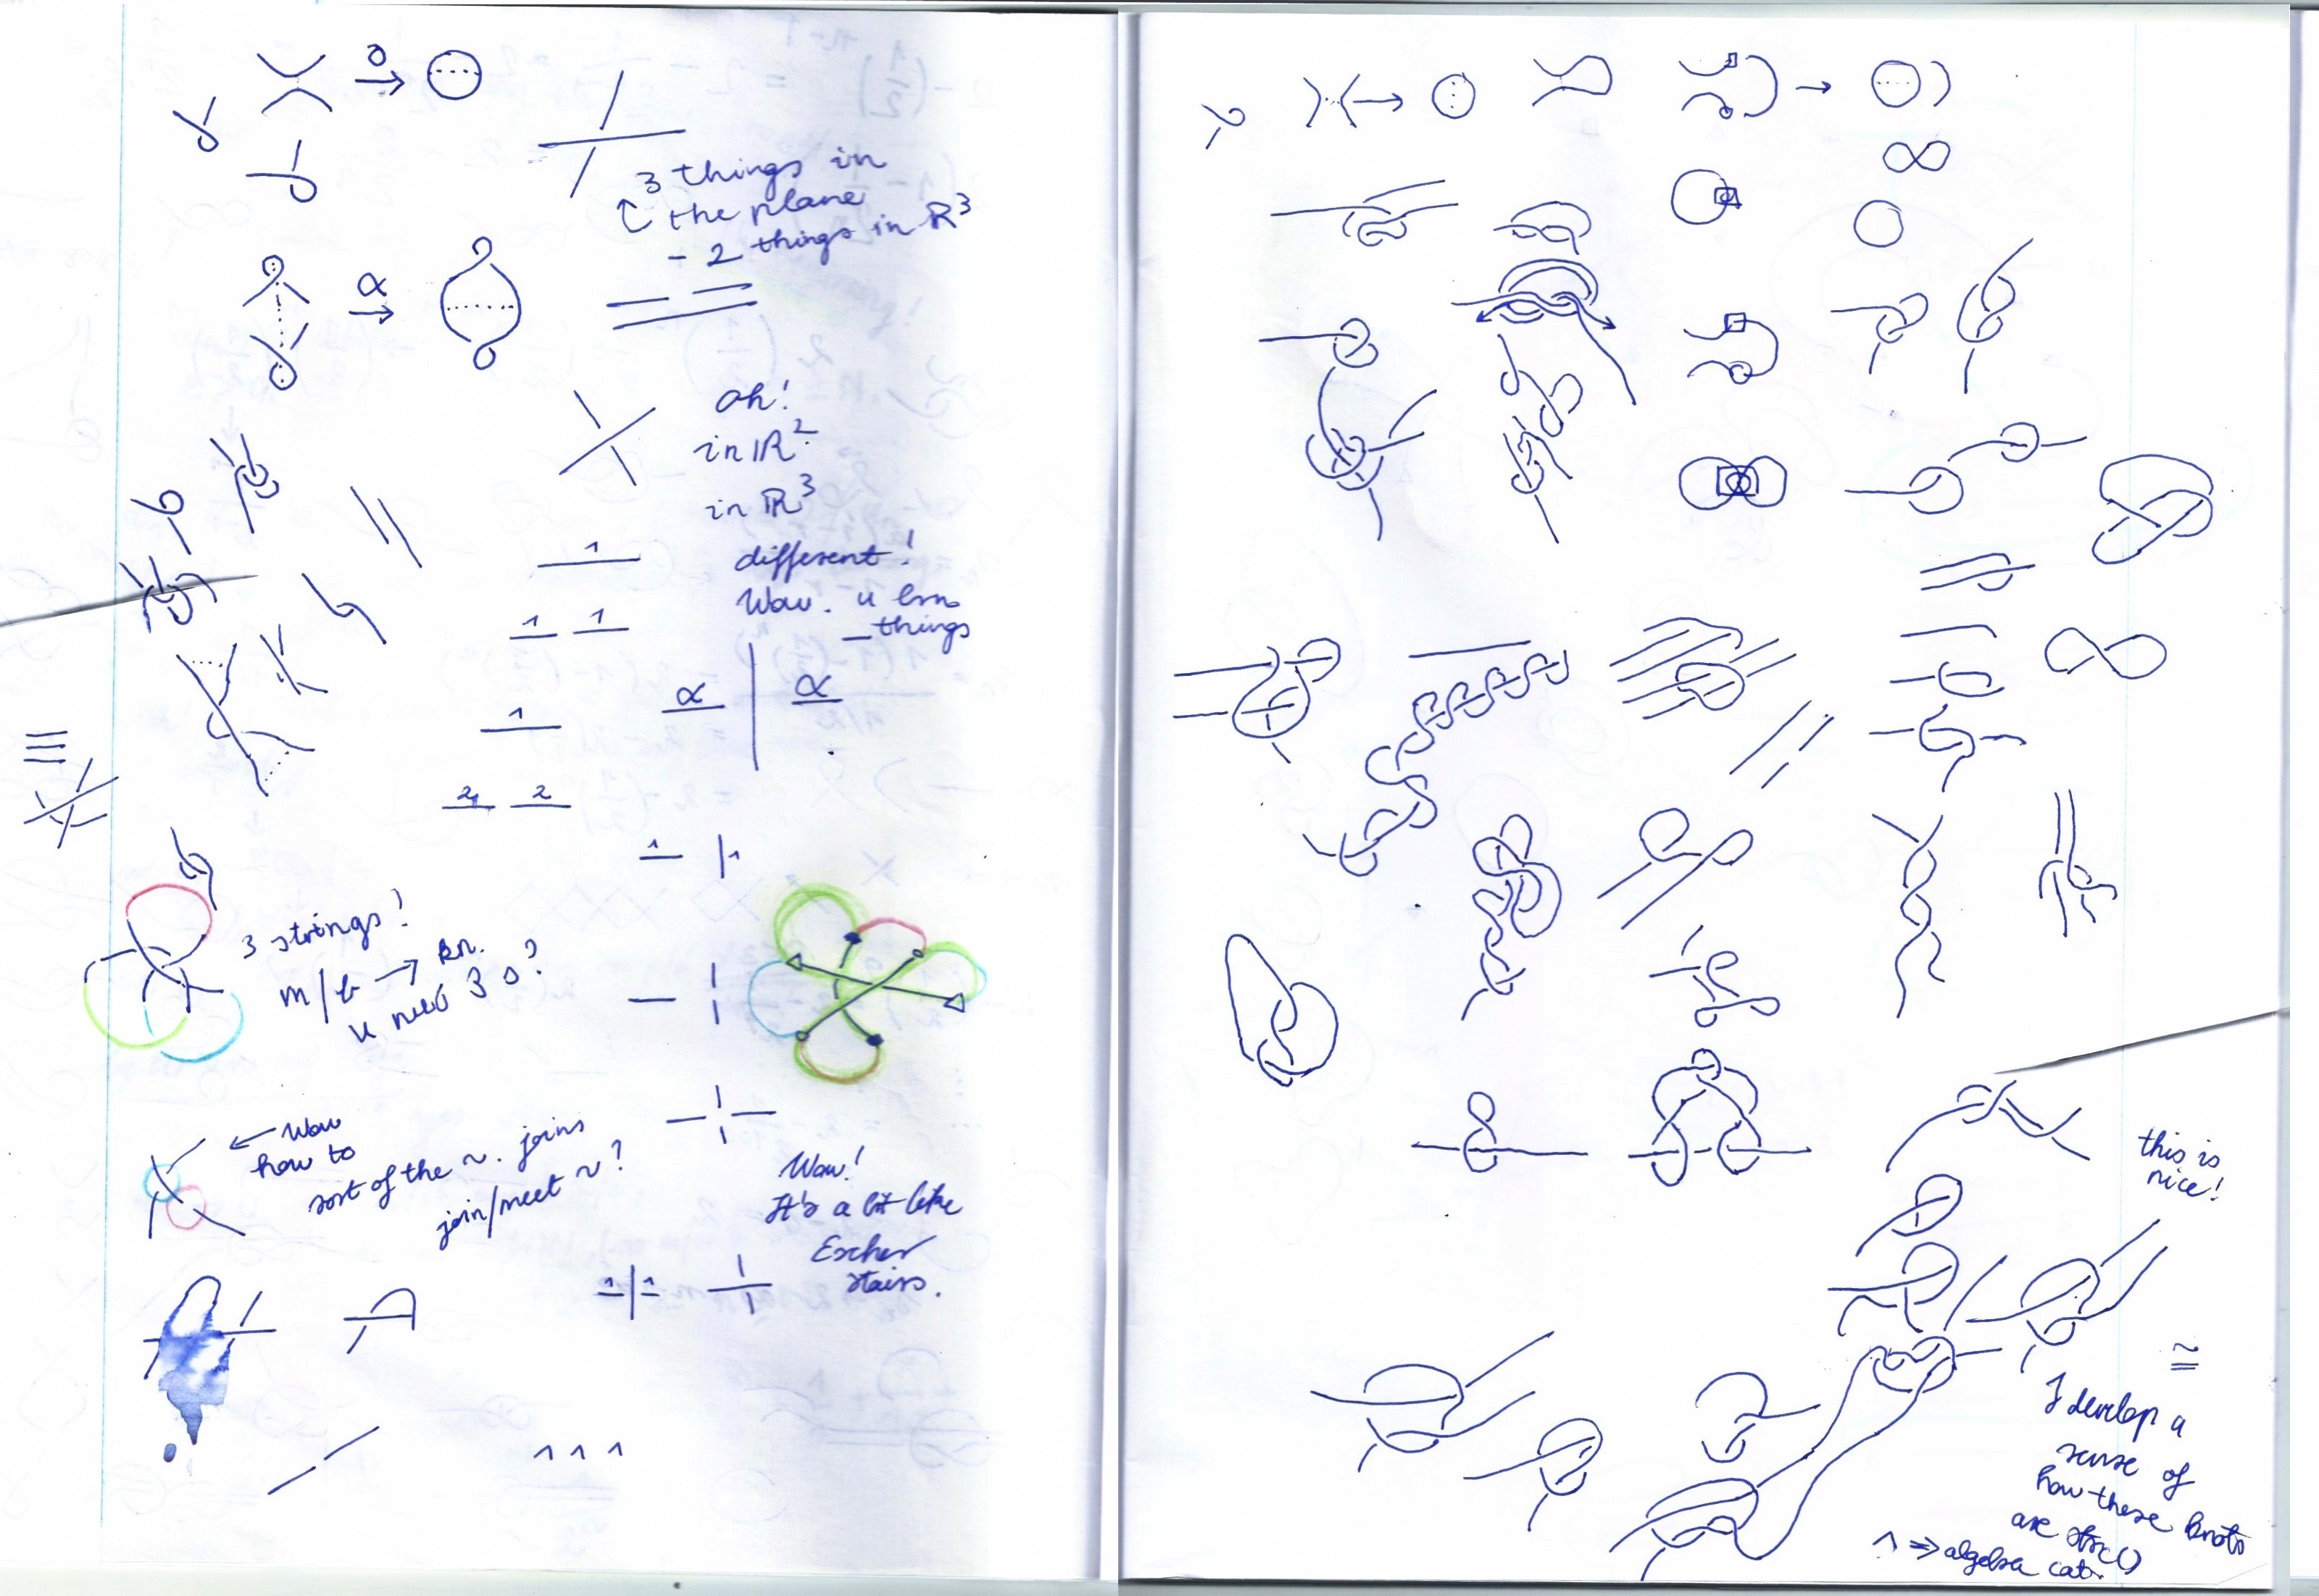 0
3 things in
the plane
- 2 things in ℝ³
α
oh!
in ℝ²
in ℝ³
different!
Wow. u
things
1
1 1
α α
1
2 2
1 1
3 strings!
m/b → kn.
u need 3 o?
← Wow
how to
sort of the ~. joins
join/meet ~?
Wow!
It's a bit like
Escher
stairs.
1 1
1 1 1
this is
nice!
≅
I develop a
sense of
how these knots
are
1 ⇒ algebra cat.